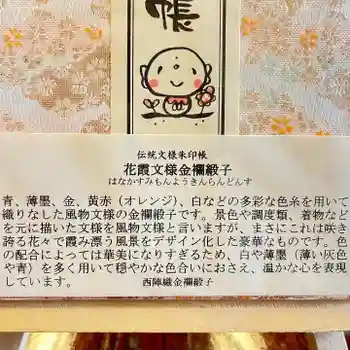 帳
伝統文様朱印帳
花霞文様金襴緞子
はなかすみもんようきんらんどんす
青、薄墨、金、黄赤（オレンジ）、白などの多彩な色糸を用いて
織りなした風物文様の金襴緞子です。景色や調度類、着物など
を元に描いた文様を風物文様と言いますが、まさにこれは咲き
誇る花々で霞み漂う風景をデザイン化した豪華なものです。色
の配合によっては華美になりすぎるため、白や薄墨（薄い灰色
や青）を多く用いて穏やかな色合いにおさえ、温かな心を表現
しています。
西陣織金襴緞子